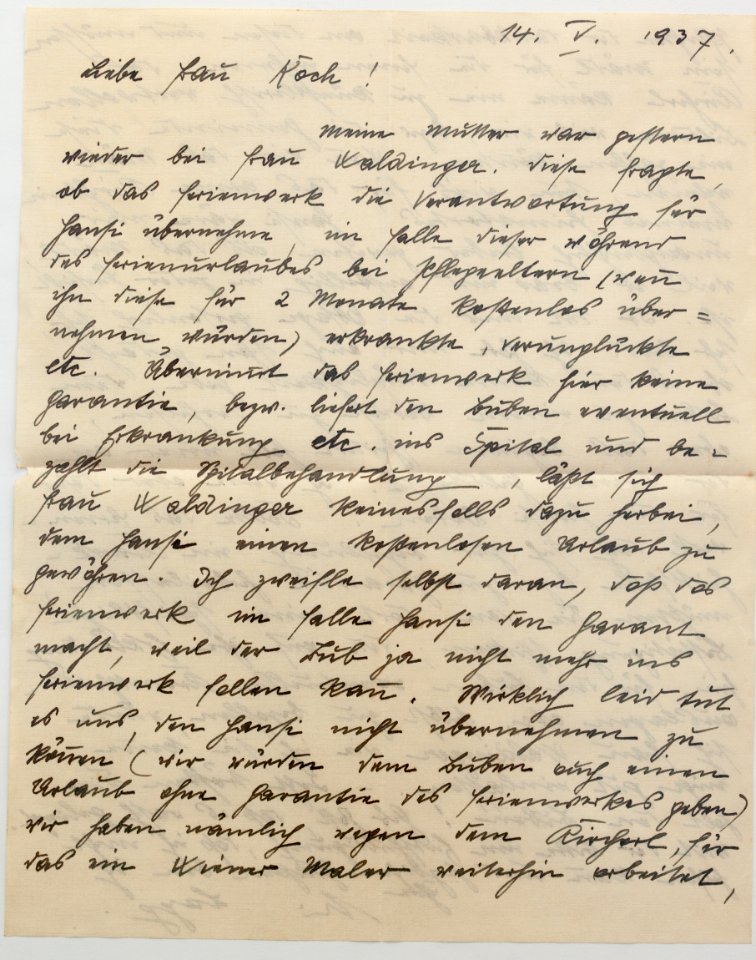 14. V. 1937.
Liebe Frau Koch!
Meine Mutter war gestern
wieder bei Frau Waldinger. Diese fragte,
ob das Ferienwerk die Verantwortung für
Hansi übernehme, im Falle dieser während
des Ferienurlaubes bei Pflegeeltern (wenn
ihn diese für 2 Monate kostenlos über=
nehmen würden) erkrankte, verunglückte
etc. Übernimmt das Ferienwerk hier keine
Garantie, bezw. liefert den Buben eventuell
bei Erkrankung etc. ins Spital und be-
zahlt die Spitalbehandlung, läßt sich
Frau Waldinger keinesfalls dazu herbei,
dem Hansi einen kostenlosen Urlaub zu
gewähren. Ich zweifle selbst daran, daß das
Ferienwerk im Falle Hansi den Garant
macht, weil der Bub ja nicht mehr ins
Ferienwerk fallen kann. Wirklich leid tut
es uns, den Hansi nicht übernehmen zu
können (wir würden dem Buben auch einen
Urlaub ohne Garantie des Ferienwerkes geben)
wir haben nämlich wegen dem Kircherl, für
das ein Wiener Maler weiterhin arbeitet,